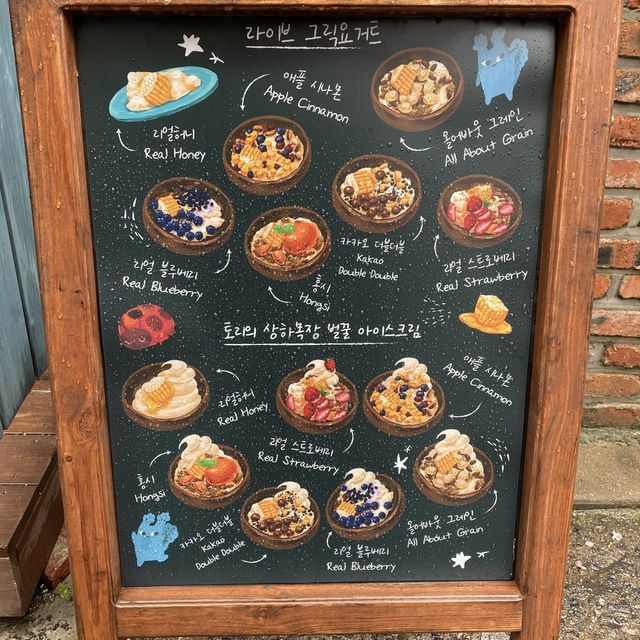 라이브 그릭요거트
애플 시나몬
Apple Cinnamon
리얼허니
Real Honey
올어바웃 그레인
All About Grain
카카오 더블더블
Kakao
Double Double
리얼 스트로베리
Real Strawberry
리얼 블루베리
Real Blueberry
홍시
Hongsi
토리의 상하목장 벌꿀 아이스크림
애플 시나몬
Apple Cinnamon
리얼허니
Real Honey
리얼 스트로베리
Real Strawberry
홍시
Hongsi
카카오 더블더블
Kakao
Double Double
리얼 블루베리
Real Blueberry
올어바웃 그레인
All About Grain